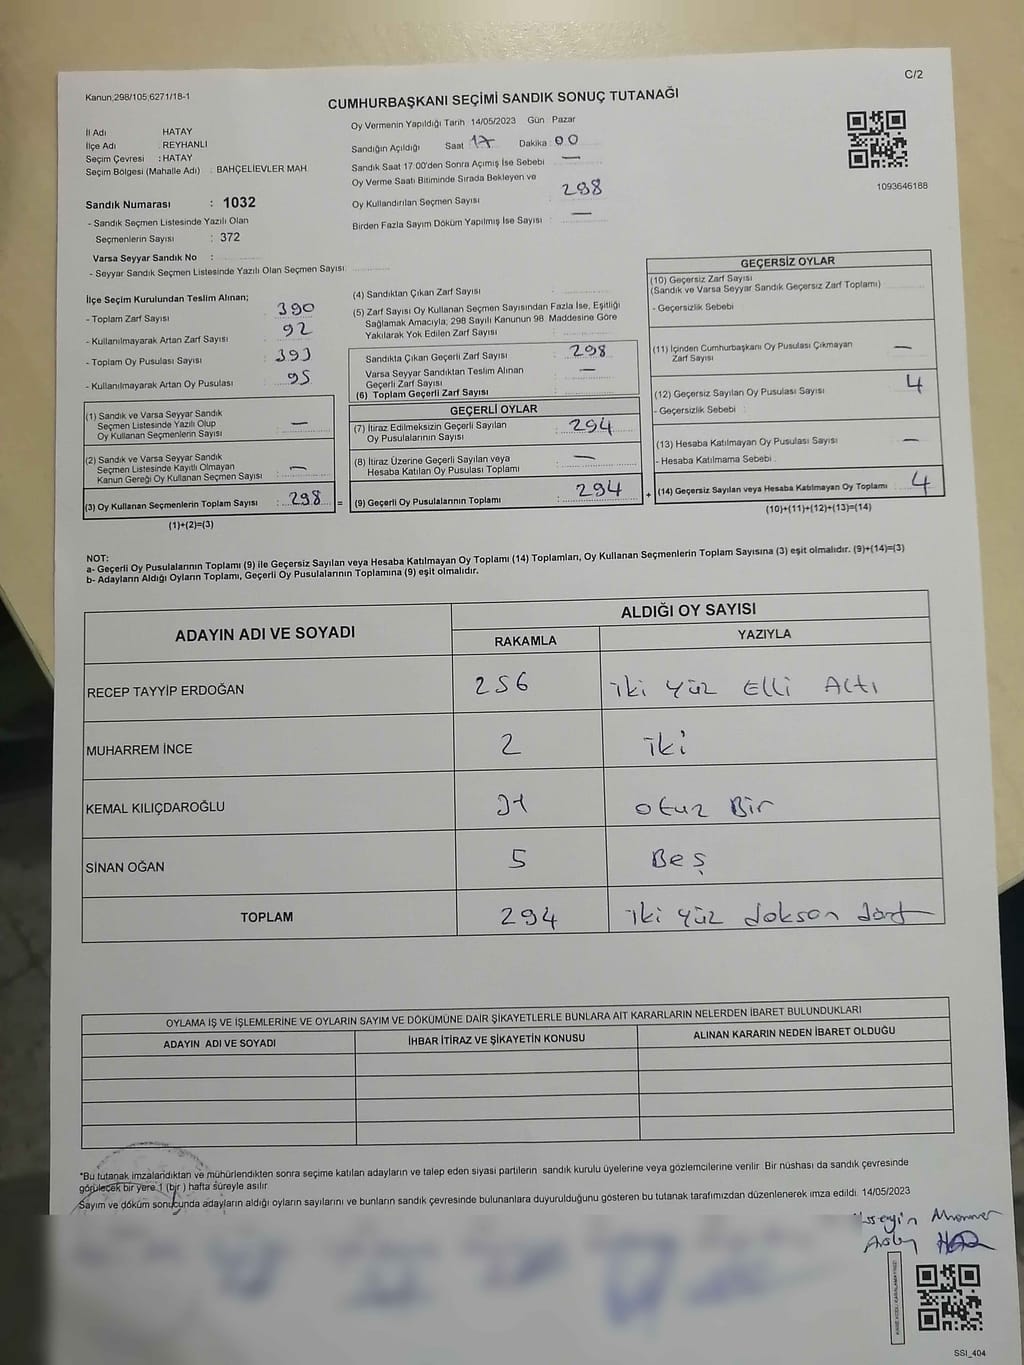 C/2
Kanun,298/105,6271/18-1
CUMHURBAŞKANI SEÇİMİ SANDIK SONUÇ TUTANAĞI
İl Adı HATAY
İlçe Adı : REYHANLI
Seçim Çevresi : HATAY
Seçim Bölgesi (Mahalle Adı) : BAHÇELİEVLER MAH
Sandık Numarası : 1032
- Sandık Seçmen Listesinde Yazılı Olan
Seçmenlerin Sayısı : 372
Varsa Seyyar Sandık No :
- Seyyar Sandık Seçmen Listesinde Yazılı Olan Seçmen Sayısı
Oy Vermenin Yapıldığı Tarih 14/05/2023 Gün Pazar
Sandığın Açıldığı Saat 17 Dakika 00
Sandık Saat 17:00'den Sonra Açımış İse Sebebi —
Oy Verme Saati Bitiminde Sırada Bekleyen ve
Oy Kullandırılan Seçmen Sayısı 298
Birden Fazla Sayım Döküm Yapılmış İse Sayısı : —
1093646188
İlçe Seçim Kurulundan Teslim Alınan;
- Toplam Zarf Sayısı : 390
- Kullanılmayarak Artan Zarf Sayısı : 92
- Toplam Oy Pusulası Sayısı : 393
- Kullanılmayarak Artan Oy Pusulası : 95
(1) Sandık ve Varsa Seyyar Sandık
Seçmen Listesinde Yazılı Olup
Oy Kullanan Seçmenlerin Sayısı : —
(2) Sandık ve Varsa Seyyar Sandık
Seçmen Listesinde Kayıtlı Olmayan
Kanun Gereği Oy Kullanan Seçmen Sayısı : —
(3) Oy Kullanan Seçmenlerin Toplam Sayısı : 298 =
(1)+(2)=(3)
(4) Sandıktan Çıkan Zarf Sayısı :
(5) Zarf Sayısı Oy Kullanan Seçmen Sayısından Fazla İse, Eşitliği
Sağlamak Amacıyla; 298 Sayılı Kanunun 98. Maddesine Göre
Yakılarak Yok Edilen Zarf Sayısı :
Sandıkta Çıkan Geçerli Zarf Sayısı : 298
Varsa Seyyar Sandıktan Teslim Alınan
Geçerli Zarf Sayısı : —
(6) Toplam Geçerli Zarf Sayısı :
GEÇERLİ OYLAR
(7) İtiraz Edilmeksizin Geçerli Sayılan
Oy Pusulalarının Sayısı : 294
(8) İtiraz Üzerine Geçerli Sayılan veya
Hesaba Katılan Oy Pusulası Toplamı : —
(9) Geçerli Oy Pusulalarının Toplamı : 294 +
GEÇERSİZ OYLAR
(10) Geçersiz Zarf Sayısı
(Sandık ve Varsa Seyyar Sandık Geçersiz Zarf Toplamı)
- Geçersizlik Sebebi
(11) İçinden Cumhurbaşkanı Oy Pusulası Çıkmayan
Zarf Sayısı —
(12) Geçersiz Sayılan Oy Pusulası Sayısı 4
- Geçersizlik Sebebi :
(13) Hesaba Katılmayan Oy Pusulası Sayısı : —
- Hesaba Katılmama Sebebi :
(14) Geçersiz Sayılan veya Hesaba Katılmayan Oy Toplamı : 4
(10)+(11)+(12)+(13)=(14)
NOT:
a- Geçerli Oy Pusulalarının Toplamı (9) ile Geçersiz Sayılan veya Hesaba Katılmayan Oy Toplamı (14) Toplamları, Oy Kullanan Seçmenlerin Toplam Sayısına (3) eşit olmalıdır. (9)+(14)=(3)
b- Adayların Aldığı Oyların Toplamı, Geçerli Oy Pusulalarının Toplamına (9) eşit olmalıdır.
ADAYIN ADI VE SOYADI ALDIĞI OY SAYISI
RAKAMLA YAZIYLA
RECEP TAYYİP ERDOĞAN 256 iki yüz Elli Altı
MUHARREM İNCE 2 iki
KEMAL KILIÇDAROĞLU 31 otuz Bir
SİNAN OĞAN 5 Beş
TOPLAM 294 iki yüz doksan dört
OYLAMA İŞ VE İŞLEMLERİNE VE OYLARIN SAYIM VE DÖKÜMÜNE DAİR ŞİKAYETLERLE BUNLARA AİT KARARLARIN NELERDEN İBARET BULUNDUKLARI
ADAYIN ADI VE SOYADI İHBAR İTİRAZ VE ŞİKAYETİN KONUSU ALINAN KARARIN NEDEN İBARET OLDUĞU
*Bu tutanak imzalandıktan ve mühürlendikten sonra seçime katılan adayların ve talep eden siyasi partilerin sandık kurulu üyelerine veya gözlemcilerine verilir Bir nüshası da sandık çevresinde
görülecek bir yere 1 (bir ) hafta süreyle asılır
Sayım ve döküm sonucunda adayların aldığı oyların sayılarını ve bunların sandık çevresinde bulunanlara duyurulduğunu gösteren bu tutanak tarafımızdan düzenlenerek imza edildi. 14/05/2023
SSI_404